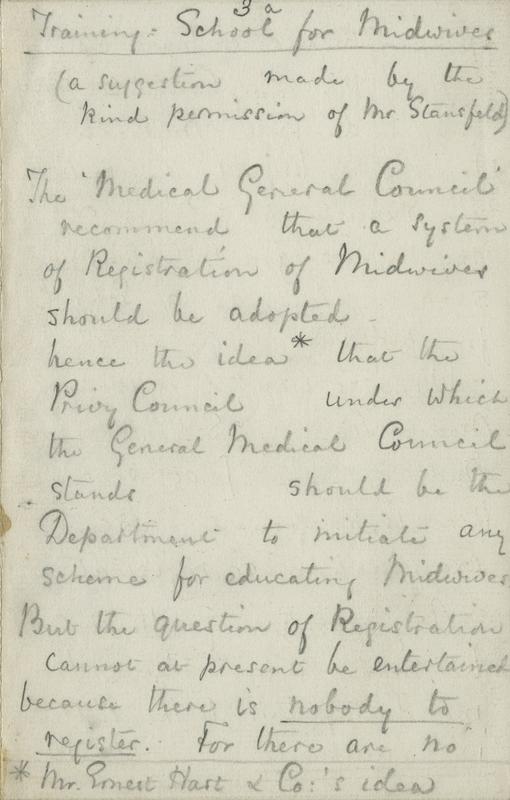 3a
Training: School for Midwives
(a suggestion made by the
kind permission of Mr Stansfeld)
The 'Medical General Council'
recommend that a system
of Registration of Midwives
should be adopted -
hence the idea* that the
Privy Council under which
the General Medical Council
stands should be the
Department to initiate any
scheme for educating Midwives
But the question of Registration
cannot at present be entertained
because there is nobody to
register. For there are no
* Mr. Ernest Hart & Co:'s idea